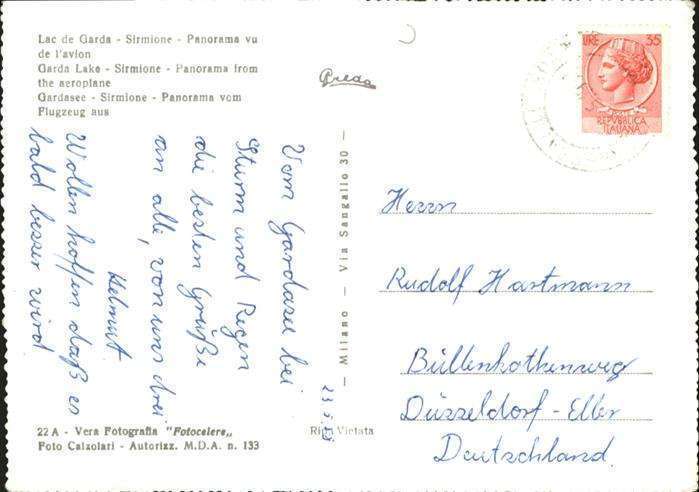 Lac de Garda - Sirmione - Panorama vu
de l'avion
Garda Lake - Sirmione - Panorama from
the aeroplane
Gardasee - Sirmione - Panorama vom
Flugzeug aus
LIRE 35
REPVBBLICA
ITALIANA
Vom Gardasee bei
Sturm und Regen
die besten Grüße
an alle, von uns drei
Helmut.
Wollen hoffen daß es
bald besser wird
— Milano — Via Sangallo 30 —
Herrn
Rudolf Hartmann
Büllenkothenweg
Düsseldorf - Eller
Deutschland.
22 A - Vera Fotografia "Fotocelere„
Foto Calzolari - Autorizz. M.D.A. n. 133
Rip. Vietata